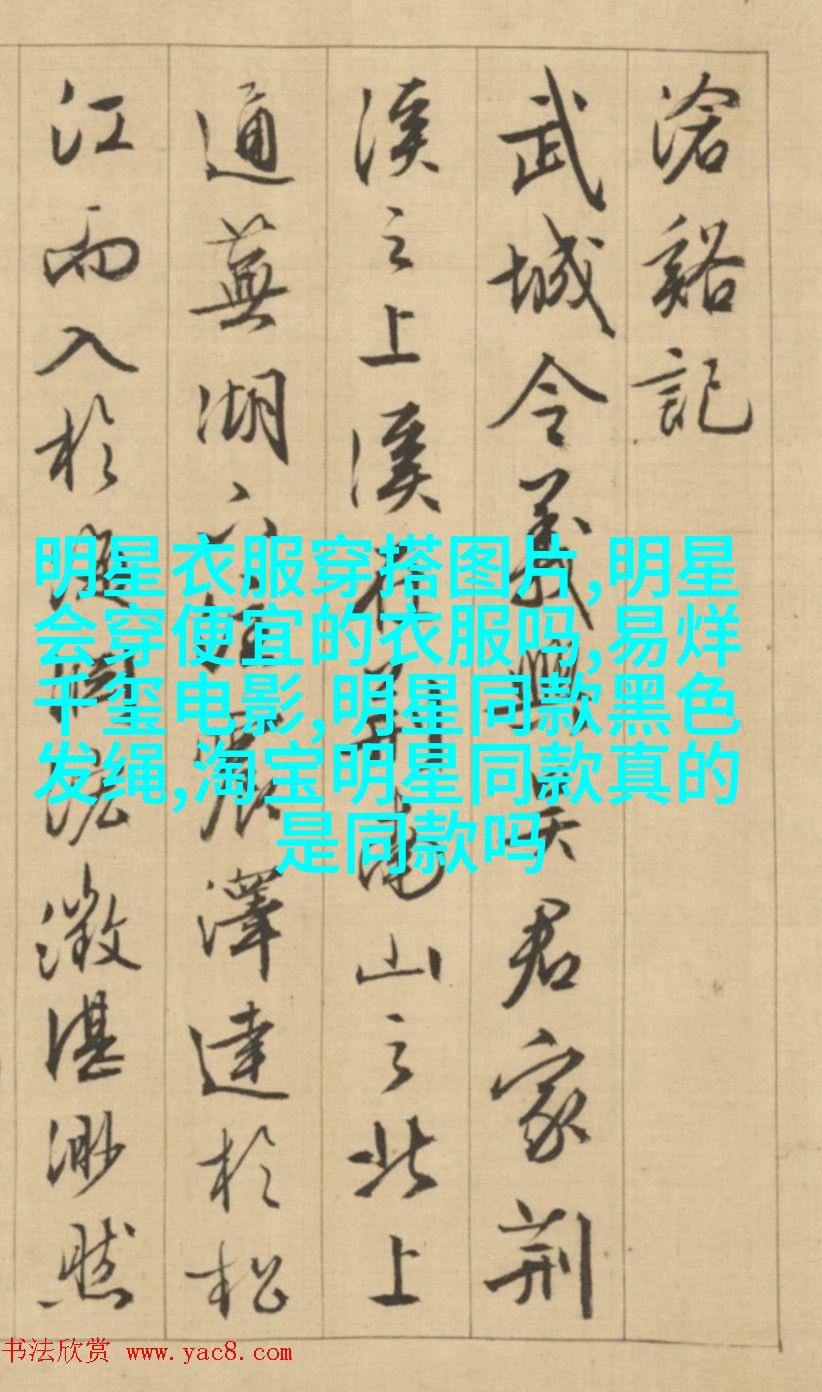 滄谿記
武城令義興吳君家荆
溪之上溪在荆南山之北上
通蕪湖下澤達於松
江而入於澂湛渺然
明星衣服穿搭图片,明星
会穿便宜的衣服吗,易烊
千玺电影,明星同款黑色
发绳,淘宝明星同款真的
是同款吗
书法欣赏 www.yac8.com